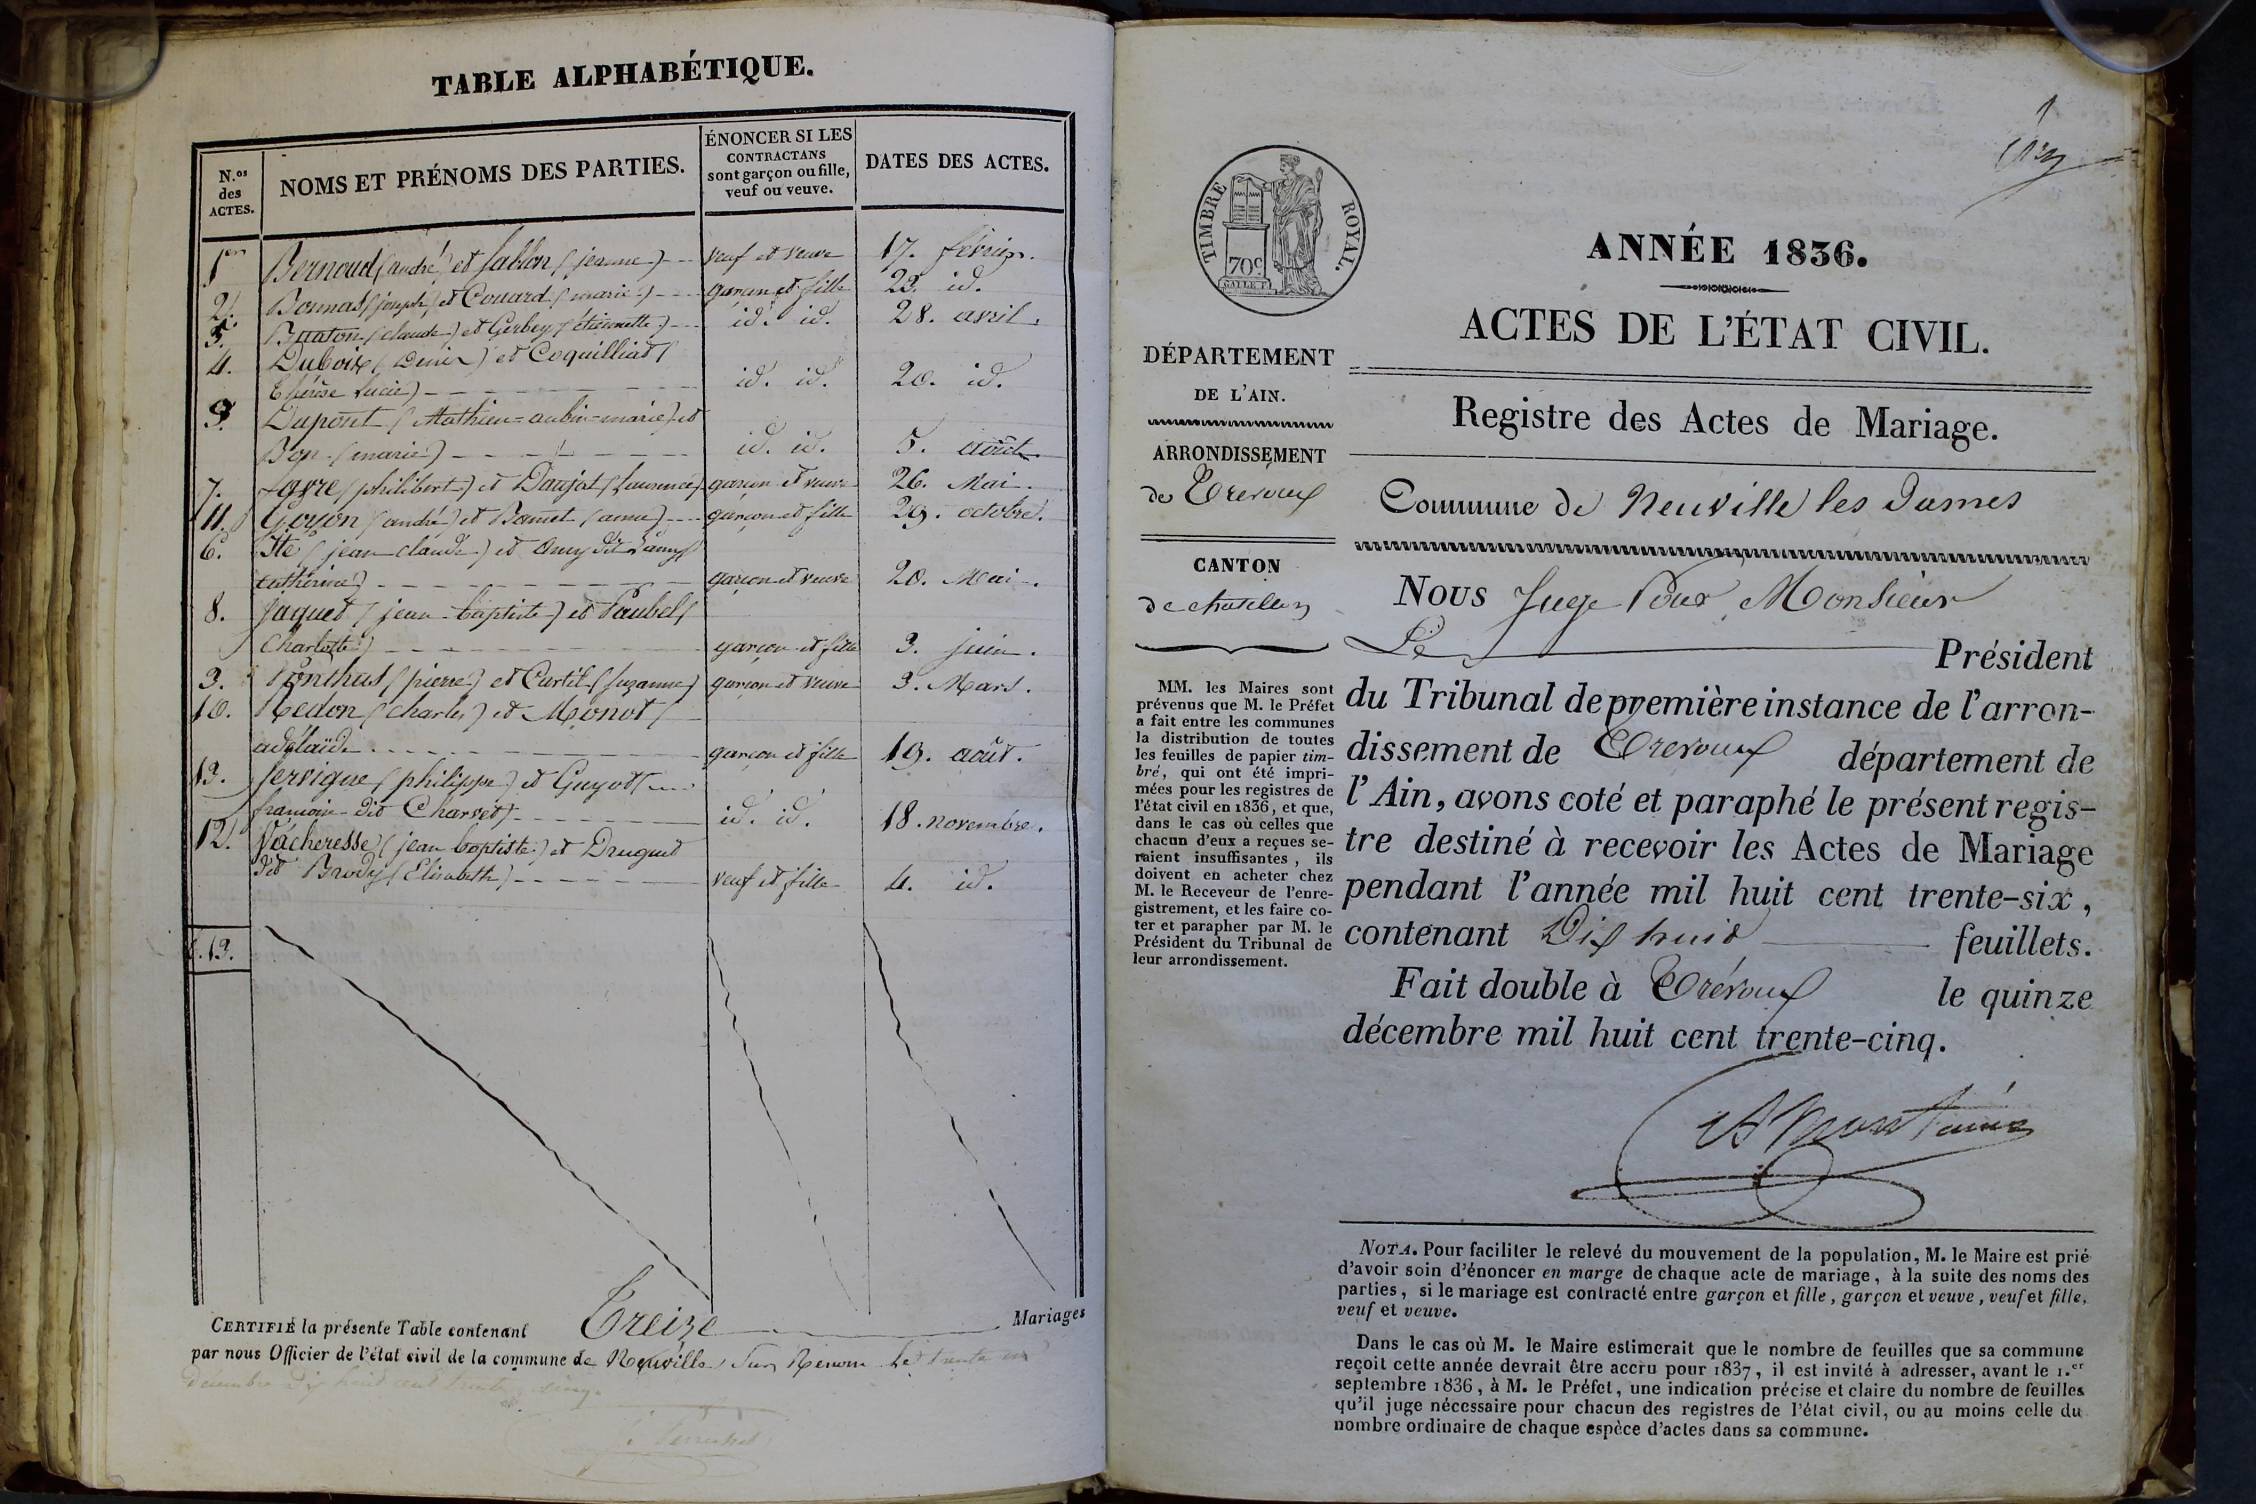 TABLE ALPHABÉTIQUE.
N.os des ACTES.
NOMS ET PRÉNOMS DES PARTIES.
ÉNONCER SI LES
CONTRACTANS
sont garçon ou fille,
veuf ou veuve.
DATES DES ACTES.
1er Bernoud (andré) et Sablon (jeanne) veuf et veuve 17. février.
2. Bonnas (joseph) et Couard (marie) garçon et fille 23. id.
5. (claude) et Gerbey (étiennette) id. id. 28. avril.
4. Duboix (Denis) et Coquilliat (
thérèse Lucie) id. id. 20. id.
9. Dupont (Mathieu=aubin=marie) et
Bon (marie) id. id. 5. août.
7. (philibert) et Daujat (laurence) garçon et veuve 26. Mai.
11. Goyon (andré) et (anne) garçon et fille 29. octobre.
6. Ite (jean claude) et dit
catherine) garçon et veuve 20. Mai.
8. Jaquet (jean-baptiste) et Paubel (
Charlotte) garçon et fille 3. juin.
3. Ponthus (pierre) et Curtil (suzanne) garçon et veuve 3. Mars.
10. Redon (Charles) et Monot (
adélaïde garçon et fille 19. août.
13. Servigne (philippe) et Guyot
françoise dit Charvet) id. id. 18. novembre.
12. Vacheresse (jean baptiste) et Druguet
dit Brody (Elisabeth) veuf et fille 4. id.
t. 13.
CERTIFIÉ la présente Table contenant Treize Mariages
par nous Officier de l'état civil de la commune de Neuville Sur Renom le trente un
décembre dix huit cent trente cinq.
1
TIMBRE ROYAL.
70c
GALLE F.
ANNÉE 1836.
ACTES DE L'ÉTAT CIVIL.
Registre des Actes de Mariage.
Commune de Neuville les Dames
DÉPARTEMENT
DE L'AIN.
ARRONDISSEMENT
de Trevoux
CANTON
de chatillon
MM. les Maires sont
prévenus que M. le Préfet
a fait entre les communes
la distribution de toutes
les feuilles de papier tim-
bré, qui ont été impri-
mées pour les registres de
l'état civil en 1836, et que,
dans le cas où celles que
chacun d'eux a reçues se-
raient insuffisantes, ils
doivent en acheter chez
M. le Receveur de l'enre-
gistrement, et les faire co-
ter et parapher par M. le
Président du Tribunal de
leur arrondissement.
Nous Juge Pour Monsieur
Le Président
du Tribunal de première instance de l'arron-
dissement de Trevoux département de
l'Ain, avons coté et paraphé le présent regis-
tre destiné à recevoir les Actes de Mariage
pendant l'année mil huit cent trente-six,
contenant Dix huit feuillets.
Fait double à Trévoux le quinze
décembre mil huit cent trente-cinq.
NOTA. Pour faciliter le relevé du mouvement de la population, M. le Maire est prié
d'avoir soin d'énoncer en marge de chaque acte de mariage, à la suite des noms des
parties, si le mariage est contracté entre garçon et fille, garçon et veuve, veuf et fille,
veuf et veuve.
Dans le cas où M. le Maire estimerait que le nombre de feuilles que sa commune
reçoit cette année devrait être accru pour 1837, il est invité à adresser, avant le 1.er
septembre 1836, à M. le Préfet, une indication précise et claire du nombre de feuilles
qu'il juge nécessaire pour chacun des registres de l'état civil, ou au moins celle du
nombre ordinaire de chaque espèce d'actes dans sa commune.